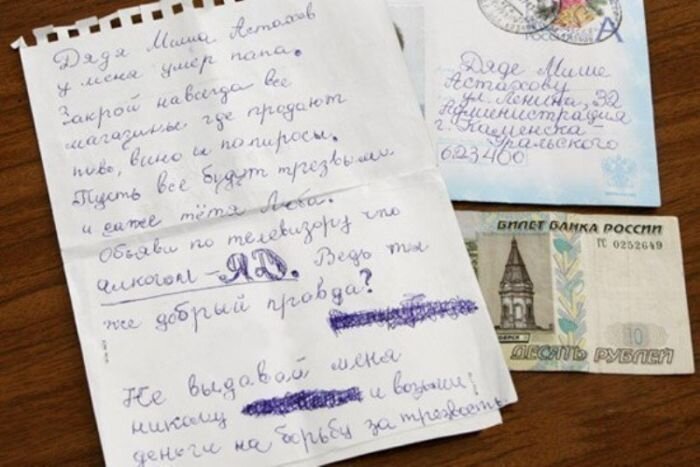 Дядя Миша Астахов
у меня умер папа.
Закрой навсегда все
магазины где продают
пиво, вино и папиросы.
Пусть все будут трезвыми
и даже тётя Люба.
Объяви по телевизору что
алкоголь – ЯД. Ведь ты
же добрый правда?
Не выдавай меня
никому и возьми
деньги на борьбу за трезвость.
РОССИЯ
А
Дяде Мише
Астахову
ул. Ленина, 32
Администрация
г. Каменска-
Уральского
623400
БИЛЕТ БАНКА РОССИИ
ГС 0252649
10
ДЕСЯТЬ РУБЛЕЙ